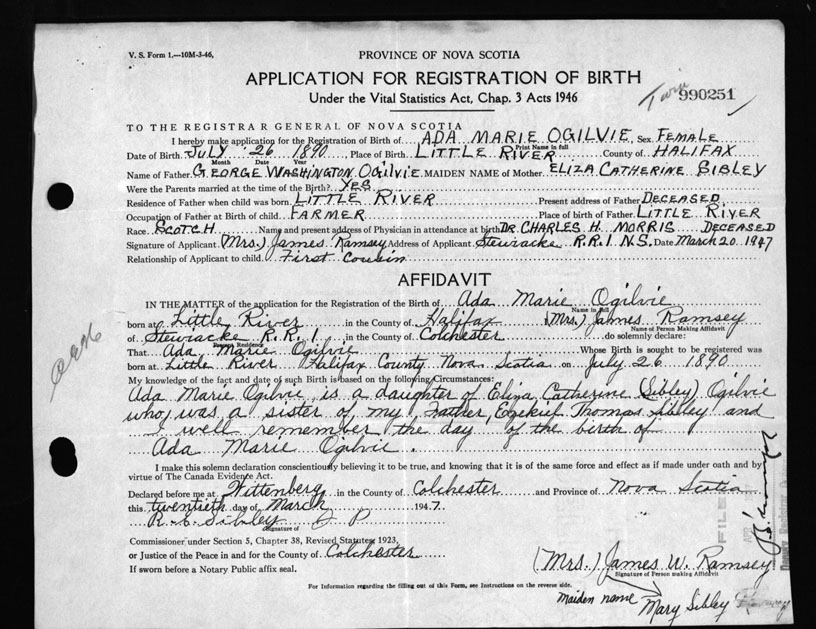 V. S. Form 1.—10M-3-46,
PROVINCE OF NOVA SCOTIA
APPLICATION FOR REGISTRATION OF BIRTH
Under the Vital Statistics Act, Chap. 3 Acts 1946
Twin 990251
TO THE REGISTRAR GENERAL OF NOVA SCOTIA
I hereby make application for the Registration of Birth of ADA MARIE OGILVIE, Sex FEMALE
Print Name in full
Date of Birth JULY 26 1890, Place of Birth LITTLE RIVER County of HALIFAX
Month Date Year
Name of Father GEORGE WASHINGTON OGILVIE MAIDEN NAME of Mother ELIZA CATHERINE SIBLEY
Were the Parents married at the time of the Birth? YES
Residence of Father when child was born LITTLE RIVER Present address of Father DECEASED
Occupation of Father at Birth of child FARMER Place of birth of Father LITTLE RIVER
Race SCOTCH Name and present address of Physician in attendance at birth DR. CHARLES H. MORRIS DECEASED
Signature of Applicant (Mrs.) James Ramsey Address of Applicant Stewiacke R.R.1 N.S. Date March 20 1947
Relationship of Applicant to child First Cousin
AFFIDAVIT
IN THE MATTER of the application for the Registration of Birth of Ada Marie Ogilvie
Name in full
born at Little River in the County of Halifax (Mrs.) James Ramsey
Name of Person Making Affidavit
of Stewiacke R.R.1 in the County of Colchester do solemnly declare:
Present Residence
That Ada Marie Ogilvie Whose Birth is sought to be registered was
born at Little River Halifax County Nova Scotia on July 26 1890
My knowledge of the fact and date of such Birth is based on the following Circumstances:
Ada Marie Ogilvie is a daughter of Eliza Catherine (Sibley) Ogilvie
who was a sister of my Father, Ezekiel Thomas Sibley and
I well remember the day of the birth of
Ada Marie Ogilvie.
I make this solemn declaration conscientiously believing it to be true, and knowing that it is of the same force and effect as if made under oath and by
virtue of The Canada Evidence Act.
Declared before me at Wittenberg in the County of Colchester and Province of Nova Scotia
this twentieth day of March 1947.
R. S. Sibley J P
Signature of
Commissioner under Section 5, Chapter 38, Revised Statutes, 1923,
or Justice of the Peace in and for the County of Colchester
If sworn before a Notary Public affix seal.
(Mrs.) James W. Ramsey
Signature of Person making Affidavit
For Information regarding the filling out of this Form, see Instructions on the reverse side.
Maiden name Mary Sibley
FILED